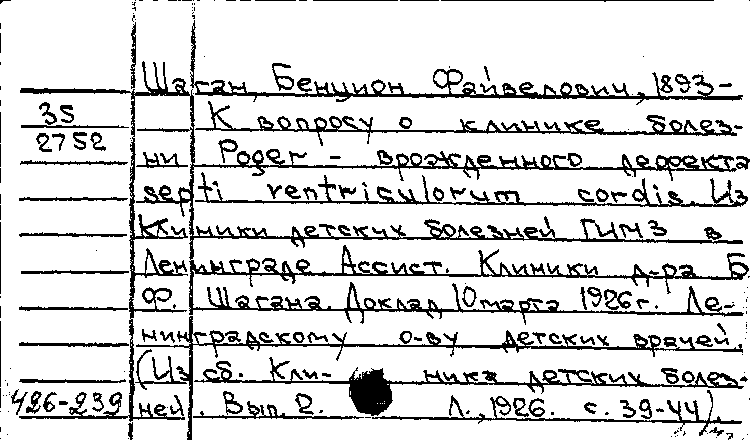 Шаган, Бенцион Файвелович, 1893-
35 К вопросу о клинике болез-
2752
ни Роger - врожденного дефекта
septi ventriculorum cordis. Из
Клиники детских болезней ГИМЗ в
Ленинграде. Ассист. Клиники д-ра Б
Ф. Шагана. Доклад 10 марта 1926 г. Ле-
нинградскому о-ву детских врачей.
(Из сб. Кли- ника детских болез-
426-239 ней. Вып. 2. Л., 1926. с. 39-44).